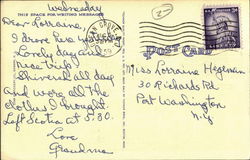 Wednesday
THIS SPACE FOR WRITING MESSAGES
Dear Lorraine,
I drove here yesterday
Lovely day and
nice trip.
Shivered all day
and wore all the
clothes I brought.
Left Scotia at 5:30.
Love
Grandma
POST CARD
LIBERTY
Miss Lorraine
30 Richards Rd
Port Washington
N.Y.